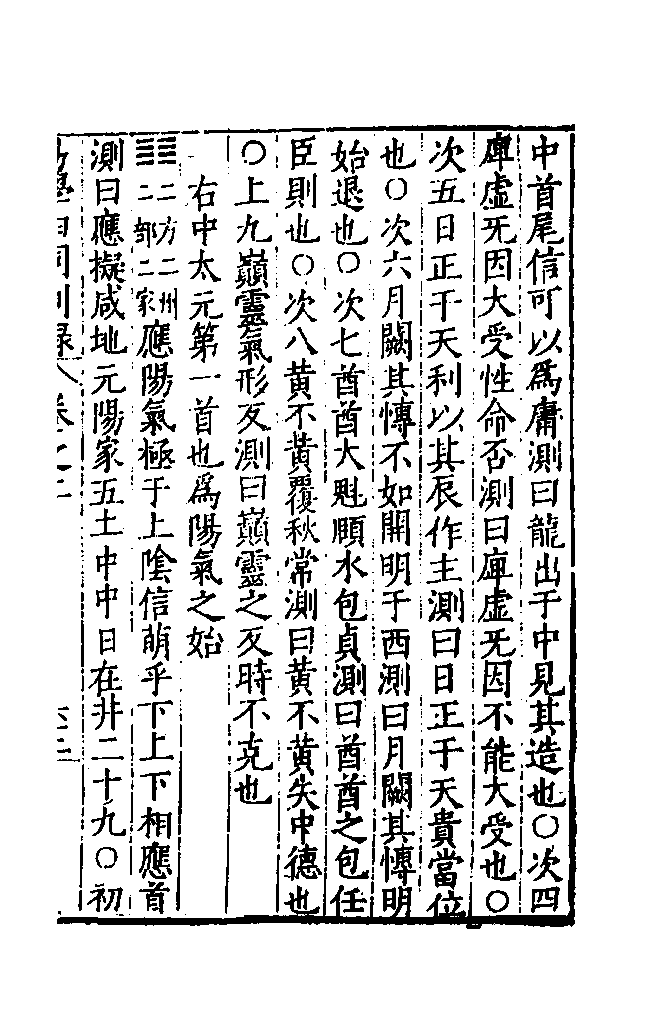 中首尾信可以爲庸測曰龍出于中見其造也○次四
庳虛旡因大受性命否測曰庳虛旡因不能大受也○
次五日正于天利以其辰作主測曰日正于天貴當位
也○次六月闕其慱不如開明于西測曰月闕其慱明
始退也○次七酋酋大魁頤水包貞測曰酋酋之包任
臣則也○次八黄不黄覆秋常測曰黄不黄失中德也
○上九巔靈氣形反測曰巔靈之反時不克也
右中太元第一首也爲陽氣之始
二方二州二部二家應陽氣極于上陰信萌乎下上下相應首
測曰應擬咸地元陽家五土中中日在井二十九○初
卷之二